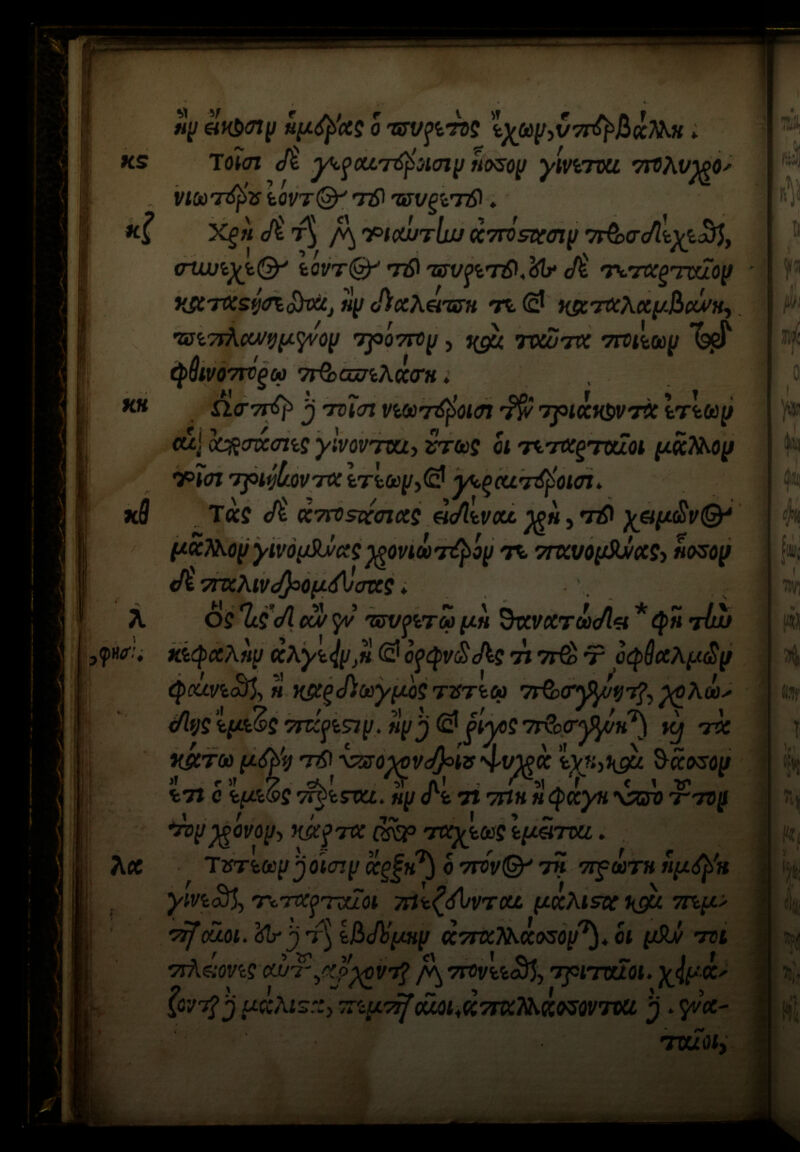 ἢν εἴκοσιν ἡμέρας ὁ πυρετὸς ἔχων, ὑπερβάλλῃ.
κϛ Τοῖσι δὲ γεραιτέροισιν ἧσσον γίνεται πολυχρο-
νιωτέρου ἐόντος τοῦ πυρετοῦ.
κζ Χρὴ δὲ τὴν μὲν τοιαύτην ἀπόστασιν προσδέχεσθαι,
συνεχέος ἐόντος τοῦ πυρετοῦ. ἐς δὲ τεταρταῖον
καταστήσεσθαι, ἢν διαλείπῃ τε καὶ καταλαμβάνῃ,
πεπλανημένον τρόπον, καὶ ταῦτα ποιέων τῷ
φθινοπώρῳ προσπελάσῃ.
κη Ὥσπερ δὲ τοῖσι νεωτέροισι τῶν τριάκοντα ἐτέων
αἱ ἀποστάσιες γίνονται, οὕτως οἱ τεταρταῖοι μᾶλλον
τοῖσι τριήκοντα ἐτέων, καὶ γεραιτέροισι.
κθ Τὰς δὲ ἀποστάσιας εἰδέναι χρὴ, τοῦ χειμῶνος
μᾶλλον γινομένας χρονιώτερόν τε παυομένας, ἧσσον
δὲ παλινδρομεύσας.
λ Ὅς τις δ' ἂν ἐν πυρετῷ μὴ θανατώδει * φῇ τὴν
, φησί. κεφαλὴν ἀλγέειν, ἢ καὶ ὀρφνῶδές τι πρὸ τῶν ὀφθαλμῶν
φαίνεσθαι, ἢ καρδιωγμὸς τουτέῳ προσγένηται, χολώ-
δης ἔμετος πάρεστιν. ἢν δὲ καὶ ῥῖγος προσγένηται καὶ τὰ
κάτω μέρη τοῦ ὑποχονδρίου ψυχρὰ ἔχῃ, καὶ θᾶσσον
ἔτι ὁ ἔμετος πάρεσται. ἢν δέ τι πίῃ ἢ φάγῃ ὑπὸ τοῦτον
τὸν χρόνον, κάρτα ταχέως ἐμεῖται.
λα Τουτέων δὲ οἷσιν ἄρξηται ὁ πόνος τῇ πρώτῃ ἡμέρῃ
γίνεσθαι, τεταρταῖοι πιεζεῦνται μάλιστα καὶ πεμ-
πταῖοι. ἐς δὲ τὴν ἑβδόμην ἀπαλλάσσονται. οἱ μὲν τοι
πλείονες αὐτῶν, ἄρχονται μὲν πονέεσθαι, τριταῖοι. χειμά-
ζονται δὲ μάλιστα, πεμπταῖοι, ἀπαλλάσσονται δὲ. ἐνα-
ταῖοι,